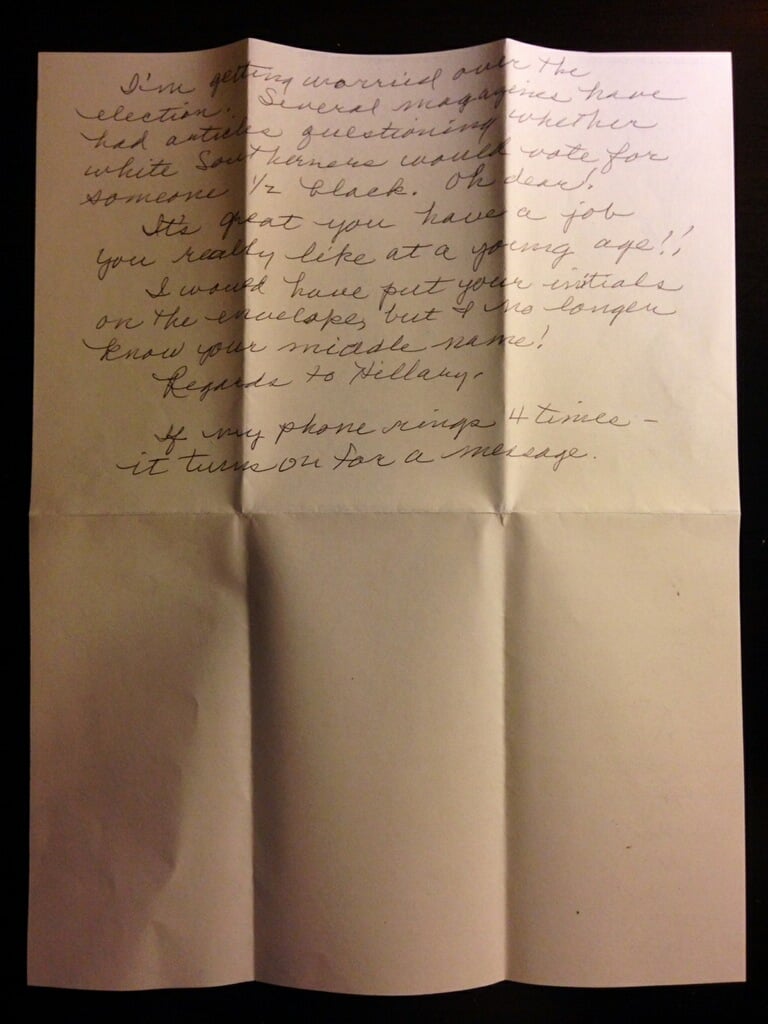 I'm getting worried over the
election. Several magazines have
had articles questioning whether
white Southerners would vote for
someone 1/2 black. Oh dear!
It's great you have a job
you really like at a young age!!
I would have put your initials
on the envelope, but I no longer
know your middle name!
Regards to Hillary.
If my phone rings 4 times -
it turns on for a message.